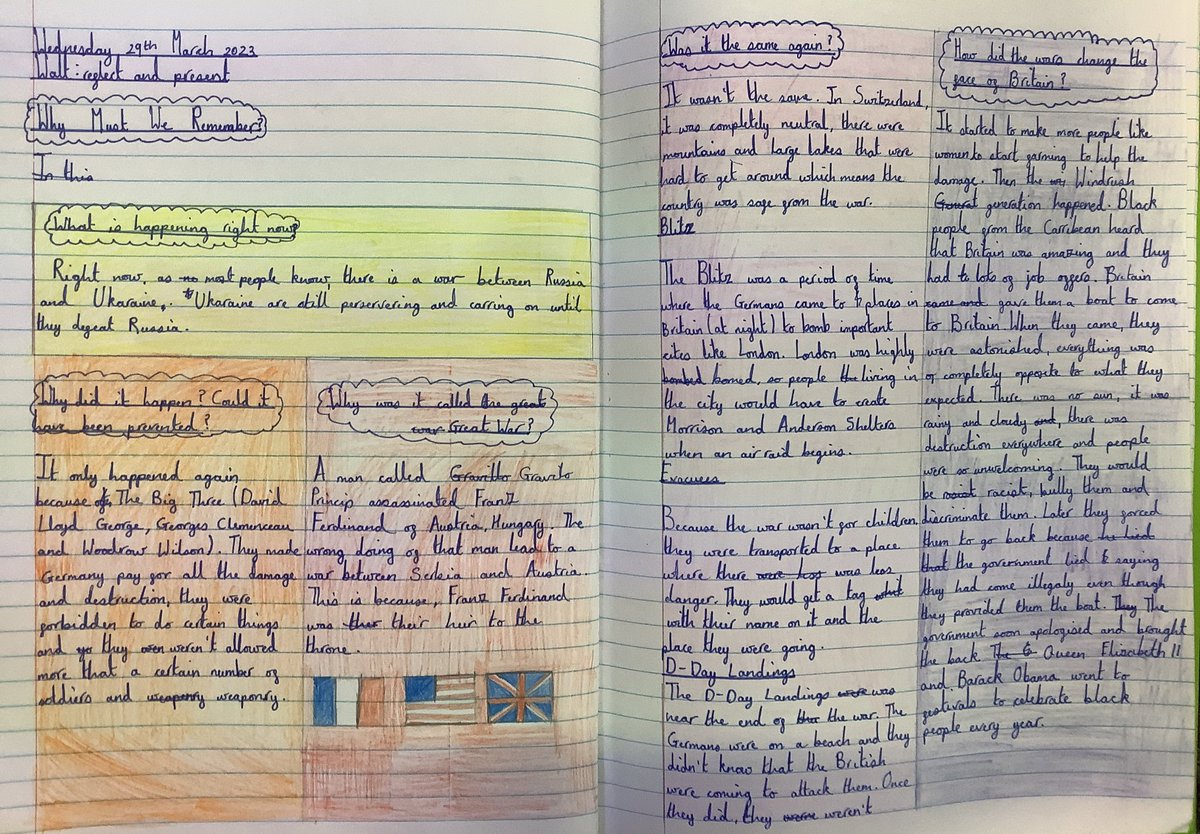 Wednesday 29th March 2023
Walt: reglect and present
Why Must We Remember?
In this
What is happening right now?
Right now, as no most people know, there is a war between Russia
and Ukaraine. Ukaraine are still perservering and carring on until
they defeat Russia.
Why did it happen? Could it
have been prevented?
It only happened again
because of The Big Three (David
Lloyd George, Georges Cleminceau
and Woodrow Wilson). They made
Germany pay for all the damage
and destruction, they were
forbidden to do certain things
and yo they even weren't allowed
more that a certain number of
soldiers and weaponry weaponry.
Why was it called the great
war Great War?
A man called Gravillo Gravilo
Princip assassinated Franz
Ferdinand of Austria, Hungary. The
wrong doing of that man lead to a
war between Serbia and Austria.
This is because, Franz Ferdinand
was their their heir to the
throne.
Was it the same again?
It wasn't the same. In Switzerland,
it was completely neutral, there were
mountains and large lakes that were
hard to get around which means the
country was safe from the war.
Blitz
The Blitz was a period of time
where the Germans came to places in
Britain (at night) to bomb important
cites like London. London was highly
bombed bomed, so people the living in
the city would have to create
Morrison and Anderson Shelters
when an air raid begins.
Evacuees
Because the war wasn't for children,
they were transported to a place
where there were less was less
danger. They would get a tag what
with their name on it and the
place they were going.
D-Day Landings
The D-Day Landings were was
near the end of the the war. The
Germans were on a beach and they
didn't know that the British
were coming to attack them. Once
they did, they were weren't
How did the wars change the
face of Britain?
It started to make more people like
women to start farming to help the
damage. Then the Windrush
generation happened. Black
people from the Carribean heard
that Britain was amazing and they
had to lots of job offers. Britain
came and gave them a boat to come
to Britain. When they came, they
were astonished, everything was
of completely opposite to what they
expected. There was no sun, it was
rainy and cloudy and, there was
destruction everywhere and people
were so unwelcoming. They would
be racist racist, bully them and
discriminate them. Later they forced
them to go back because he lied
that the government lied & saying
they had come illegaly even though
they provided them the boat. They The
government soon apologised and brought
the back. The Queen Elizabeth II
and Barack Obama went to
festivals to celebrate black
people every year.